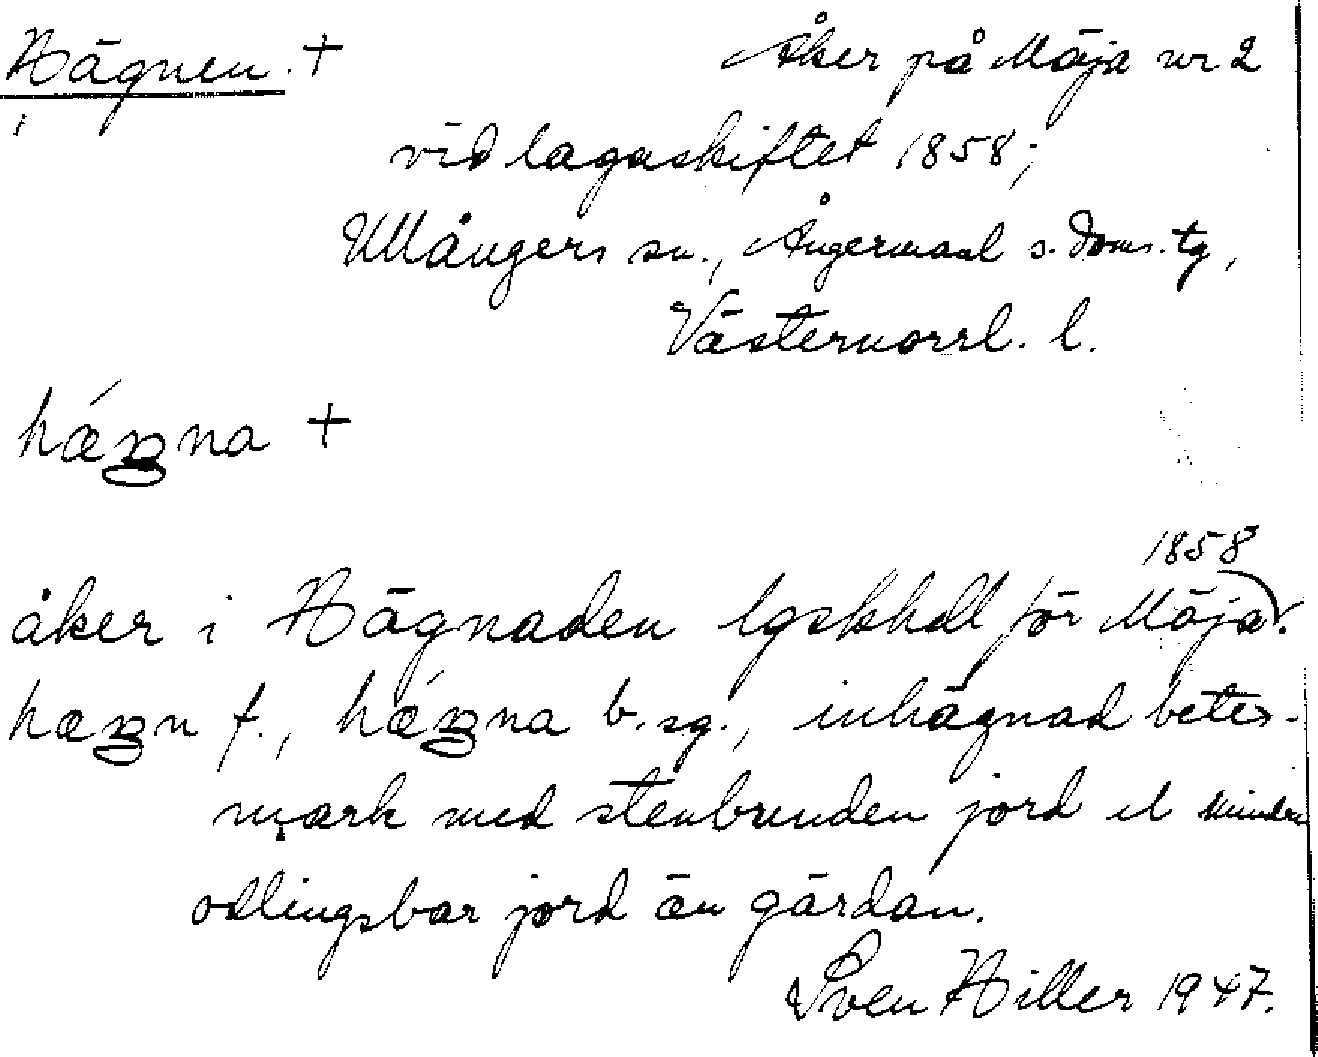 Hägnen. + Åker på Mäja nr 2
vid lagaskiftet 1858;
Ullångers sn., Ångermanl s. doms. tg,
Västernorrl. l.
hǽŋna +
1858
åker i Hägnaden lgskhdl för Mäja.
hæŋn f., hǽŋna b. sg., inhägnad betes-
mark med stenbunden jord el mindre
odlingsbar jord än gärdan.
Sven Hiller 1947.